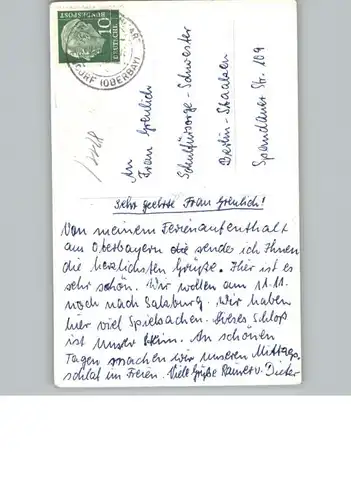 10
DEUTSCHE
BUNDESPOST
DORF (OBERBAY)
An
Frau Greulich
Schulfürsorge-Schwester
Berlin-Staaken
Spandauer Str. 109
Sehr geehrte Frau Greulich!
Von meinem Ferienaufenthalt
am Oberbayern die sende ich Ihnen
die herzlichsten Grüße. Hier ist es
sehr schön. Wir wollen am 11.11.
noch nach Salzburg. Wir haben
hier viel Spielsachen. Dieses Schloß
ist unser Heim. An schönen
Tagen machen wir unseren Mittags
schlaf im Freien. Viele Grüße Rainer u. Dieter